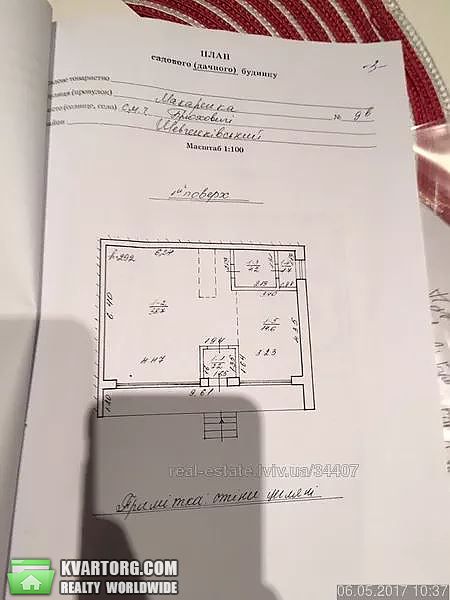 ПЛАН
садового (дачного) будинку
-3-
адове товариство
улиця (провулок) Макаренка № 9в
місто (селище, село) с.м.т. Брюховичі
район Шевченківський
Масштаб 1:100
1й поверх
h-292
6.40
1-2
4.17
1.94
1-1
1-3
4.2
1-4
3.40
1-5
19.6
3.23
4.35
1.64
9.61
1.10
real-estate.lviv.ua/34407
Примітка: стіни цегляні
KVARTORG.COM
REALTY WORLDWIDE
06.05.2017 10:37